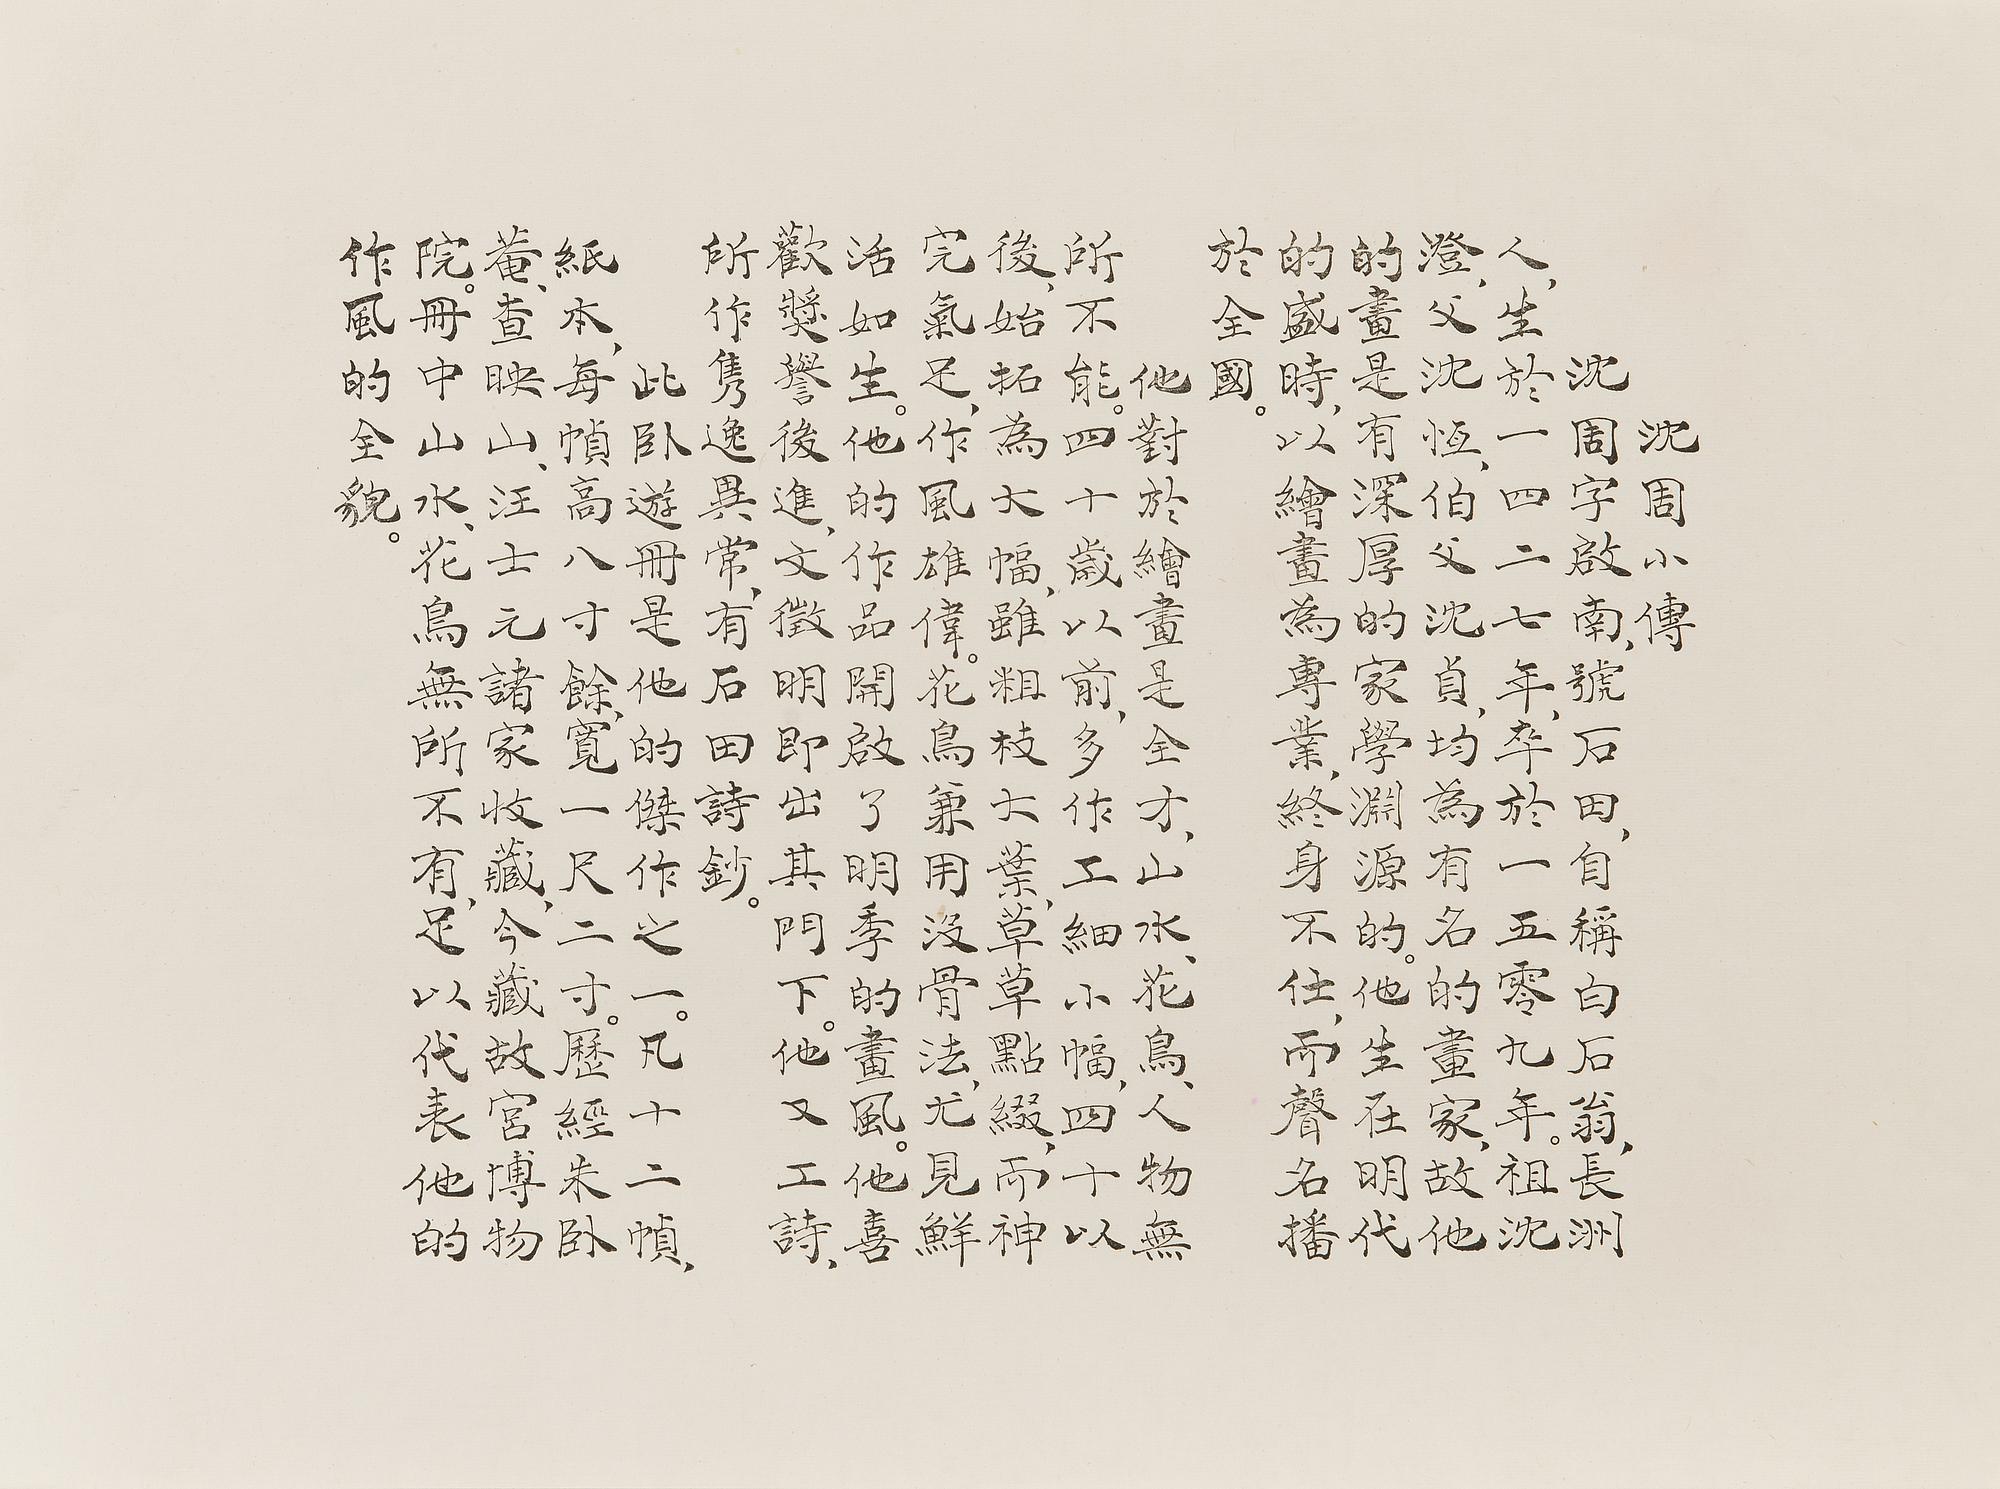 沈周小傳
沈周字啟南，號石田，自稱白石翁，長洲
人，生於一四二七年，卒於一五零九年。祖沈
澄，父沈恆，伯父沈貞，均為有名的畫家，故他
的畫是有深厚的家學淵源的。他生在明代
的盛時，以繪畫為專業，終身不仕，而聲名播
於全國。
他對於繪畫是全才，山水、花鳥、人物無
所不能。四十歲以前，多作工細小幅，四十以
後，始拓為大幅，雖粗枝大葉，草草點綴，而神
完氣足，作風雄偉。花鳥兼用沒骨法，尤見鮮
活如生。他的作品開啟了明季的畫風。他喜
歡獎譽後進，文徵明即出其門下。他又工詩，
所作雋逸異常，有石田詩鈔。
此卧遊冊是他的傑作之一。凡十二幀，
紙本，每幀高八寸餘，寬一尺二寸。歷經朱卧
菴、查映山、汪士元諸家收藏，今藏故宮博物
院。冊中山水、花鳥無所不有，足以代表他的
作風的全貌。